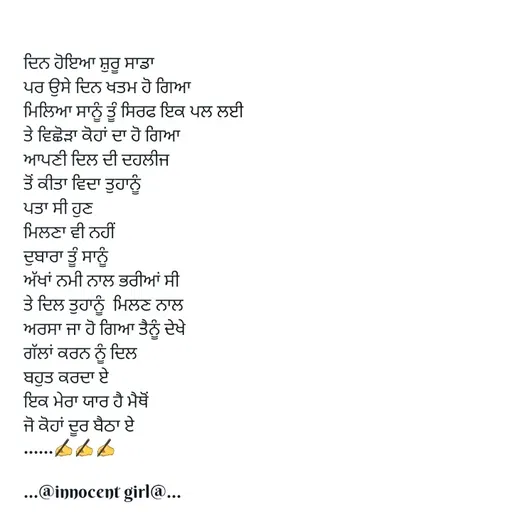 ਦਿਨ ਹੋਇਆ ਸ਼ੁਰੂ ਸਾਡਾ
ਪਰ ਉਸੇ ਦਿਨ ਖਤਮ ਹੋ ਗਿਆ
ਮਿਲਿਆ ਸਾਨੂੰ ਤੂੰ ਸਿਰਫ ਇਕ ਪਲ ਲਈ
ਤੇ ਵਿਛੋੜਾ ਕੋਹਾਂ ਦਾ ਹੋ ਗਿਆ
ਆਪਣੀ ਦਿਲ ਦੀ ਦਹਲੀਜ
ਤੋਂ ਕੀਤਾ ਵਿਦਾ ਤੁਹਾਨੂੰ
ਪਤਾ ਸੀ ਹੁਣ
ਮਿਲਣਾ ਵੀ ਨਹੀਂ
ਦੁਬਾਰਾ ਤੂੰ ਸਾਨੂੰ
ਅੱਖਾਂ ਨਮੀ ਨਾਲ ਭਰੀਆਂ ਸੀ
ਤੇ ਦਿਲ ਤੁਹਾਨੂੰ ਮਿਲਣ ਨਾਲ
ਅਰਸਾ ਜਾ ਹੋ ਗਿਆ ਤੈਨੂੰ ਦੇਖੇ
ਗੱਲਾਂ ਕਰਨ ਨੂੰ ਦਿਲ
ਬਹੁਤ ਕਰਦਾ ਏ
ਇਕ ਮੇਰਾ ਯਾਰ ਹੈ ਮੈਥੋਂ
ਜੋ ਕੋਹਾਂ ਦੂਰ ਬੈਠਾ ਏ
......✍️✍️✍️
...@innocent girl@...